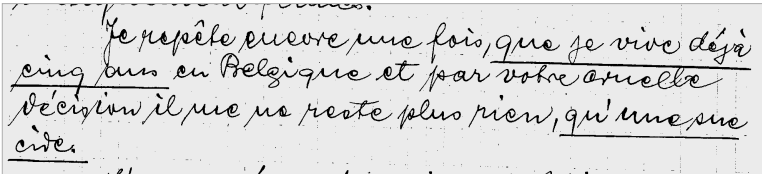 Je repête encore une fois, que je vive déjà
cinq ans en Belgique et par votre cruelle
décision il me ne reste plus rien, qu'une sue
cide.